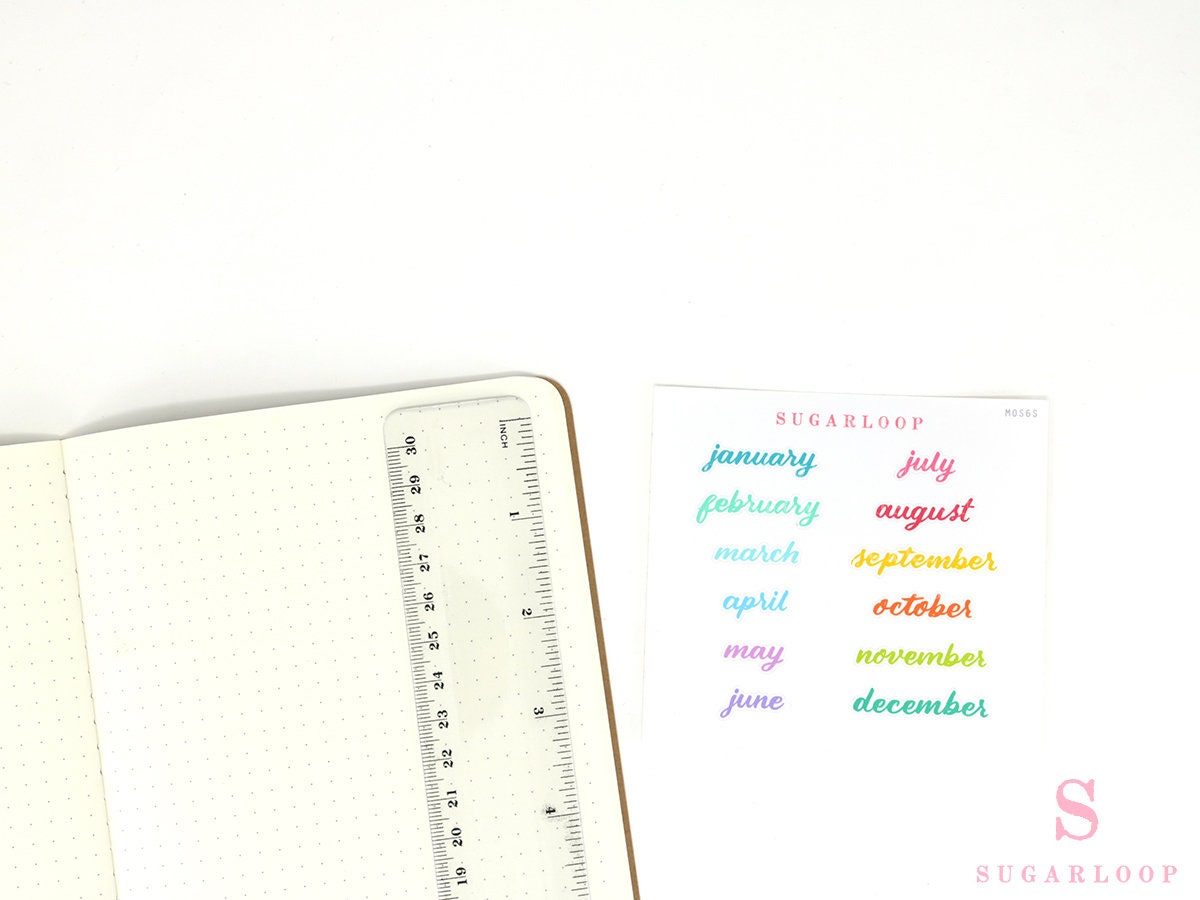 INCH
1
2
3
4
30
29
28
27
26
25
24
23
22
21
20
19
SUGARLOOP
MOS6S
january
february
march
april
may
june
july
august
september
october
november
december
S
SUGARLOOP